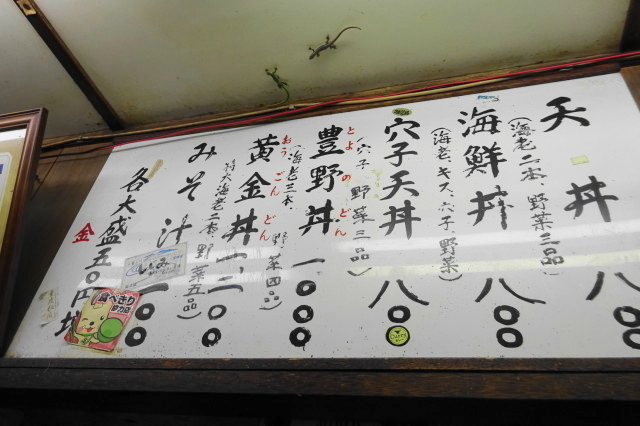 天丼 八〇〇
(海老二本、野菜三品)
海鮮丼 八〇〇
(海老、キス、穴子、野菜)
穴子天丼 八〇〇
(穴子 野菜三品)
とよのどん
豊野丼 一〇〇〇
(海老三本、野菜四品)
おうごんどん
黄金丼 一、二〇〇
特大海老二本、野菜五品)
みそ汁 一〇〇
各大盛五〇円増
金
食べきり